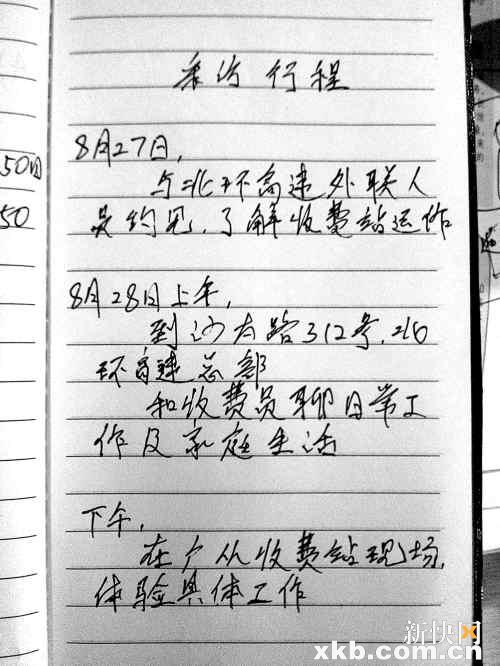 采访行程
50
8月27日,
与北环高速外联人
50
员约见,了解收费站运作
8月28日上午,
到沙太路312号,北
环高速总部
和收费员聊日常工
作及家庭生活
下午,
在广从收费站现场,
体验具体工作
新快网
xkb.com.cn